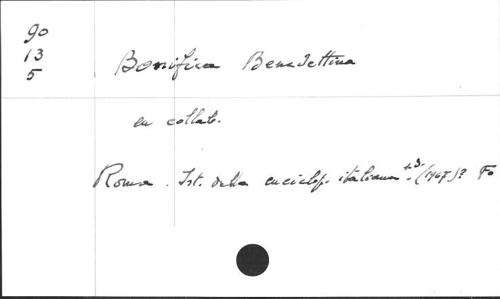 90
13
5
Bonifica Benedettina
en collab.
Roma. Ist. della enciclop. italiana. s.d. (196?)? Fo